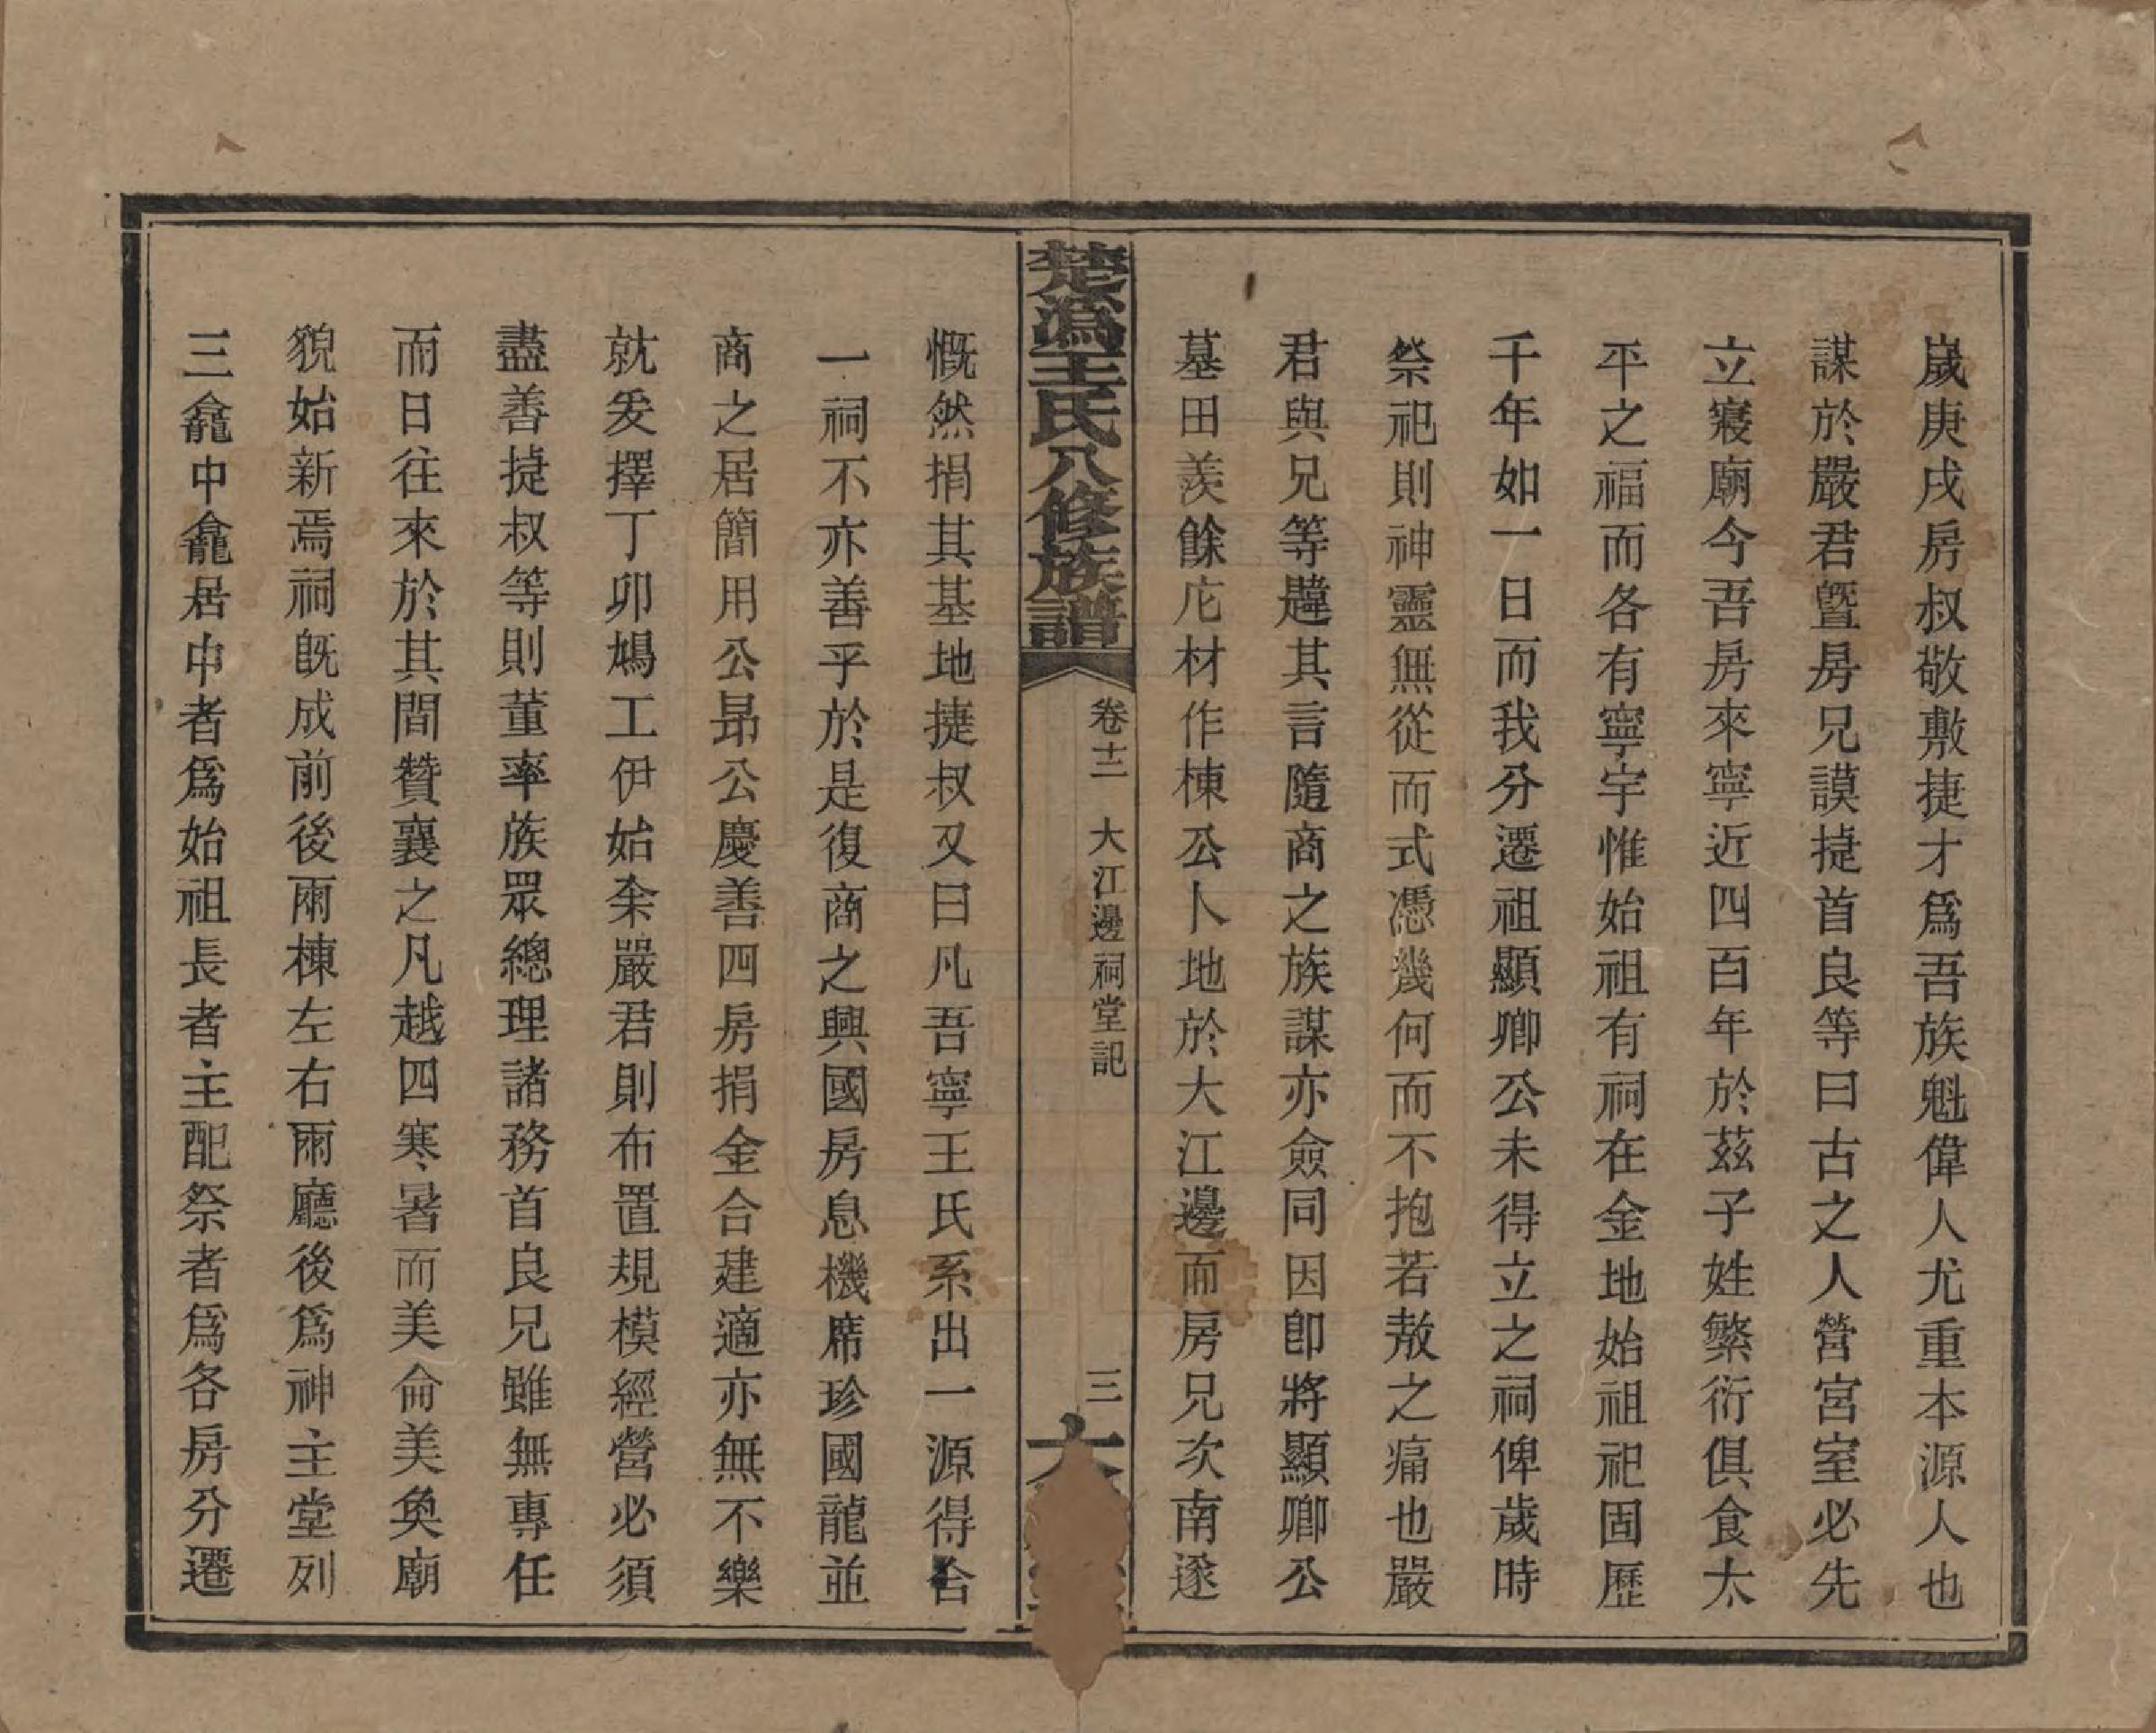 歲庚戌房叔敬敷捷才爲吾族魁偉人尤重本源人也
謀於嚴君曁房兄謨捷首良等曰古之人營宮室必先
立寢廟今吾房來寧近四百年於茲子姓繁衍俱食太
平之福而各有寧宇惟始祖有祠在金地始祖祀固歷
千年如一日而我分遷祖顯卿公未得立之祠俾歲時
祭祀則神靈無從而式憑幾何而不抱若敖之痛也嚴
君與兄等韙其言隨商之族謀亦僉同因卽將顯卿公
墓田羨餘庀材作棟公卜地於大江邊而房兄次南遂
楚潙王氏八修族譜
卷十二 大江邊祠堂記
三
慨然捐其基地捷叔又曰凡吾寧王氏系出一源得合
一祠不亦善乎於是復商之興國房息機席珍國龍並
商之居簡用公昻公慶善四房捐金合建適亦無不樂
就爰擇丁卯鳩工伊始余嚴君則布置規模經營必須
盡善捷叔等則董率族眾總理諸務首良兄雖無專任
而日往來於其間贊襄之凡越四寒暑而美侖美奐廟
貌始新焉祠旣成前後兩棟左右兩廳後爲神主堂列
三龕中龕居中者爲始祖長者主配祭者爲各房分遷